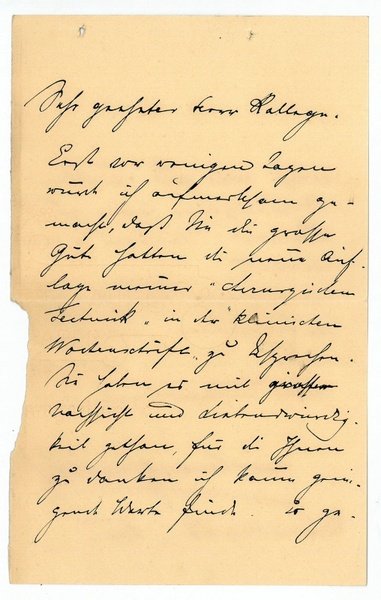 Sehr geehrter Herr Kollege.
Erst vor wenigen Tagen
wurde ich aufmerksam ge-
macht, daß Sie die grosse
Güte hatten die neue Auf-
lage meiner "chirurgischen
Technik" in der "klinischen
Wochenschrift" zu besprechen.
Sie haben es mit grosser
Nachsicht und Liebenswürdig-
keit gethan, für die Ihnen
zu danken ich kaum genü-
gende Worte finde. Es ge-